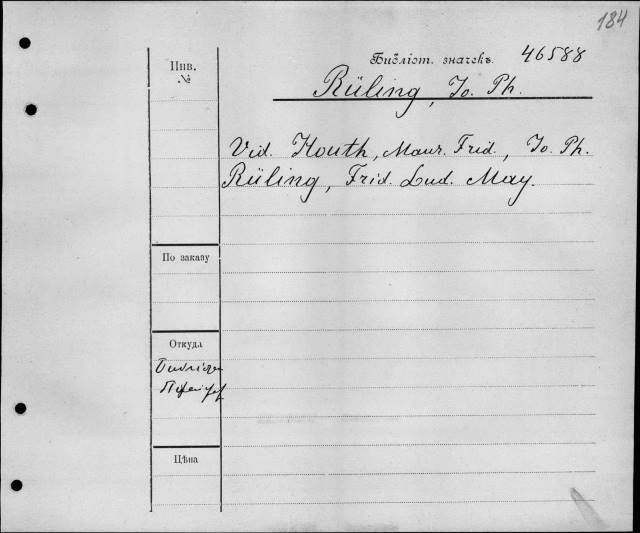 184
Библіот. значекъ. 46588
Инв.
№
Rüling, Jo. Ph.
Vid. Houth, Maur. Frid., Jo. Ph.
Rüling, Frid. Lud. May.
По заказу
Откуда
Цѣна